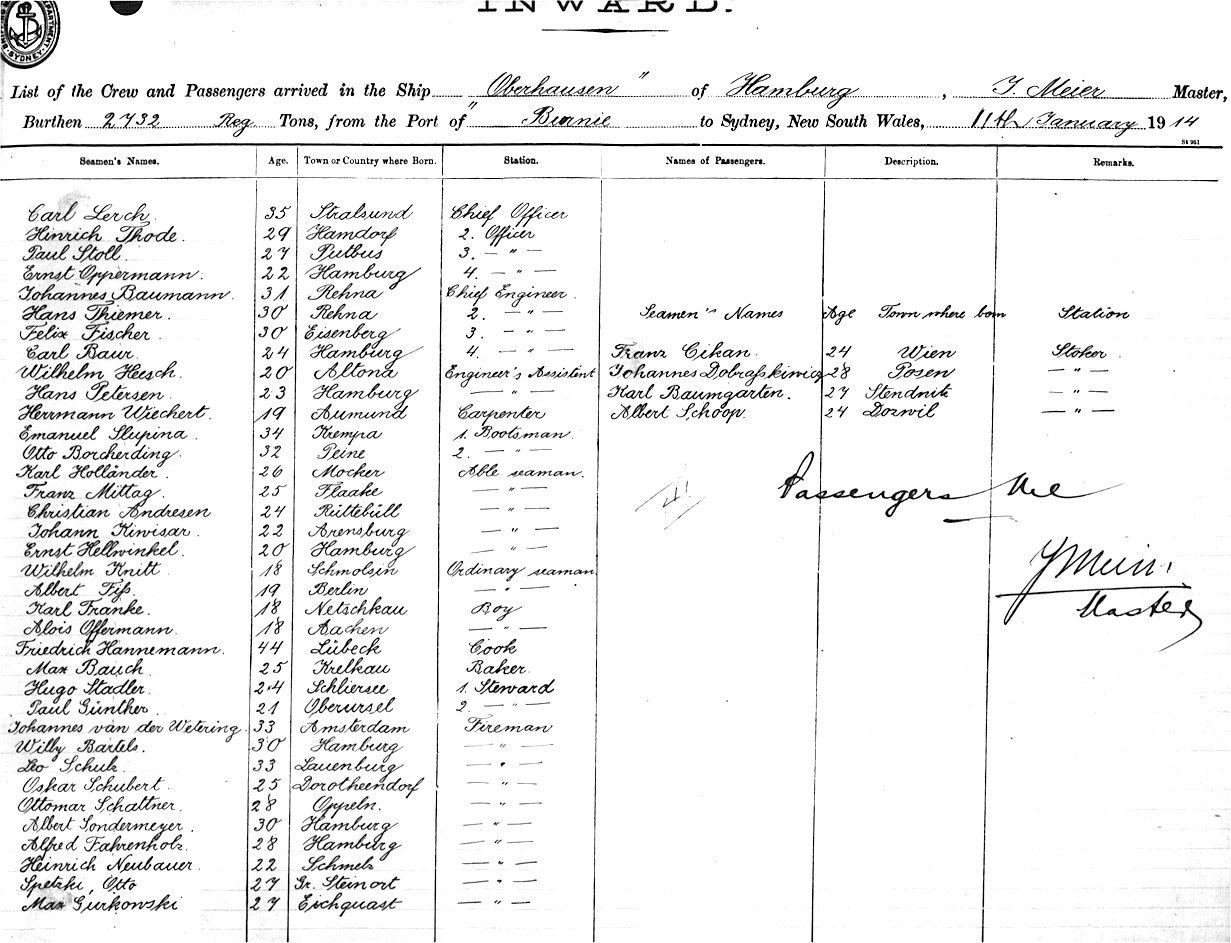 INWARD.
SYDNEY
List of the Crew and Passengers arrived in the Ship "Oberhausen" of Hamburg, J. Meier Master,
Burthen 2732 Reg. Tons, from the Port of "Burnie to Sydney, New South Wales, 11th January 1914
St 961
Seamen's Names. Age. Town or Country where Born. Station. Names of Passengers. Description. Remarks.
Carl Lerch. 35 Stralsund Chief Officer
Hinrich Thode. 29 Hamdorf 2. Officer
Paul Stoll. 27 Putbus 3. — " —
Ernst Oppermann. 22 Hamburg 4. — " —
Johannes Baumann. 31 Rehna Chief Engineer.
Hans Thiemer. 30 Rehna 2. — " — Seamen's Names Age Town where born Station
Felix Fischer. 30 Eisenberg 3. — " —
Carl Baur. 24 Hamburg 4. — " — Franz Cikan. 24 Wien Stoker.
Wilhelm Heesch. 20 Altona Engineer's Assistent Johannes 28 Posen — " —
Hans Petersen. 23 Hamburg — " — Karl Baumgarten. 27 Stendnitz — " —
Herrmann Wiechert. 19 Aumund Carpenter Albert Schoop. 24 Dozwil — " —
Emanuel Slupina. 34 Krempa 1. Bootsman.
Otto Borcherding. 32 Peine 2. — " —
Karl Holländer. 26 Mocker Able seaman.
Franz Mittag. 25 Flaake — " —
Christian Andresen 24 Rüttebüll — " —
Johann Kiwisar. 22 Arensburg — " —
Ernst Hellwinkel. 20 Hamburg — " —
Wilhelm Knitt. 18 Schmolsin Ordinary seaman.
Albert Fiß. 19 Berlin — " —
Karl Franke. 18 Netschkau Boy
Alois Offermann. 18 Aachen — " —
Friedrich Hannemann. 44 Lübeck Cook
Max Bauch. 25 Krelkau Baker.
Hugo Stadler. 24 Schliersee 1. Steward
Paul Günther. 21 Oberursel 2. — " —
Johannes van der Wetering. 33 Amsterdam Fireman
Willy Bartels. 30 Hamburg — " —
Leo Schulz. 33 Lauenburg — " —
Oskar Schubert. 25 Dorotheendorf — " —
Ottomar Schattner. 28 Oppeln. — " —
Albert Sondermeyer. 30 Hamburg — " —
Alfred Fahrenholz. 28 Hamburg — " —
Heinrich Neubauer. 22 Schmelz — " —
Spetzki, Otto 27 Gr. Steinort — " —
Max Gurkowski 27 Eichquast — " —
41
Passengers Nil
J Meier.
Master